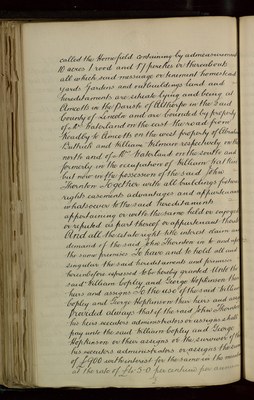 called the Homefield containing by admeasurement
10 acres 1 rood and 17 perches or thereabouts
all which said messuage or tenement homestead
yards gardens and outbuildings land and
hereditaments are situate lying and being at
Amcotts in the Parish of Althorpe in the said
County of Lincoln and are bounded by property
of Mr Waterland on the east the road from
Keadby to Amcotts on the west property of
and William respectively on the
north and of Mr Waterland on the south and
formerly in the occupation of William
but now in the possession of the said John
Thornton Together with all buildings fixtures
rights easements advantages and appurtenances
whatsoever to the said hereditaments
appertaining or with the same held or enjoyed
or reputed as part thereof or appurtenant thereto
And all the estate right title interest claim and
demand of the said John Thornton in to and upon
the same premises To have and to hold all and
singular the said hereditaments and premises
hereinbefore expressed to be hereby granted Unto the
said William Copley and George Hopkinson their
heirs and assigns To the use of the said William
Copley and George Hopkinson their heirs and assigns
Provided always that if the said John Thornton
his heirs executors administrators or assigns shall
pay unto the said William Copley and George
Hopkinson or their assigns or the survivor of them
his executors administrators or assigns the sum
of £400 with interest for the same in the meantime
at the rate of £ per centum per annum